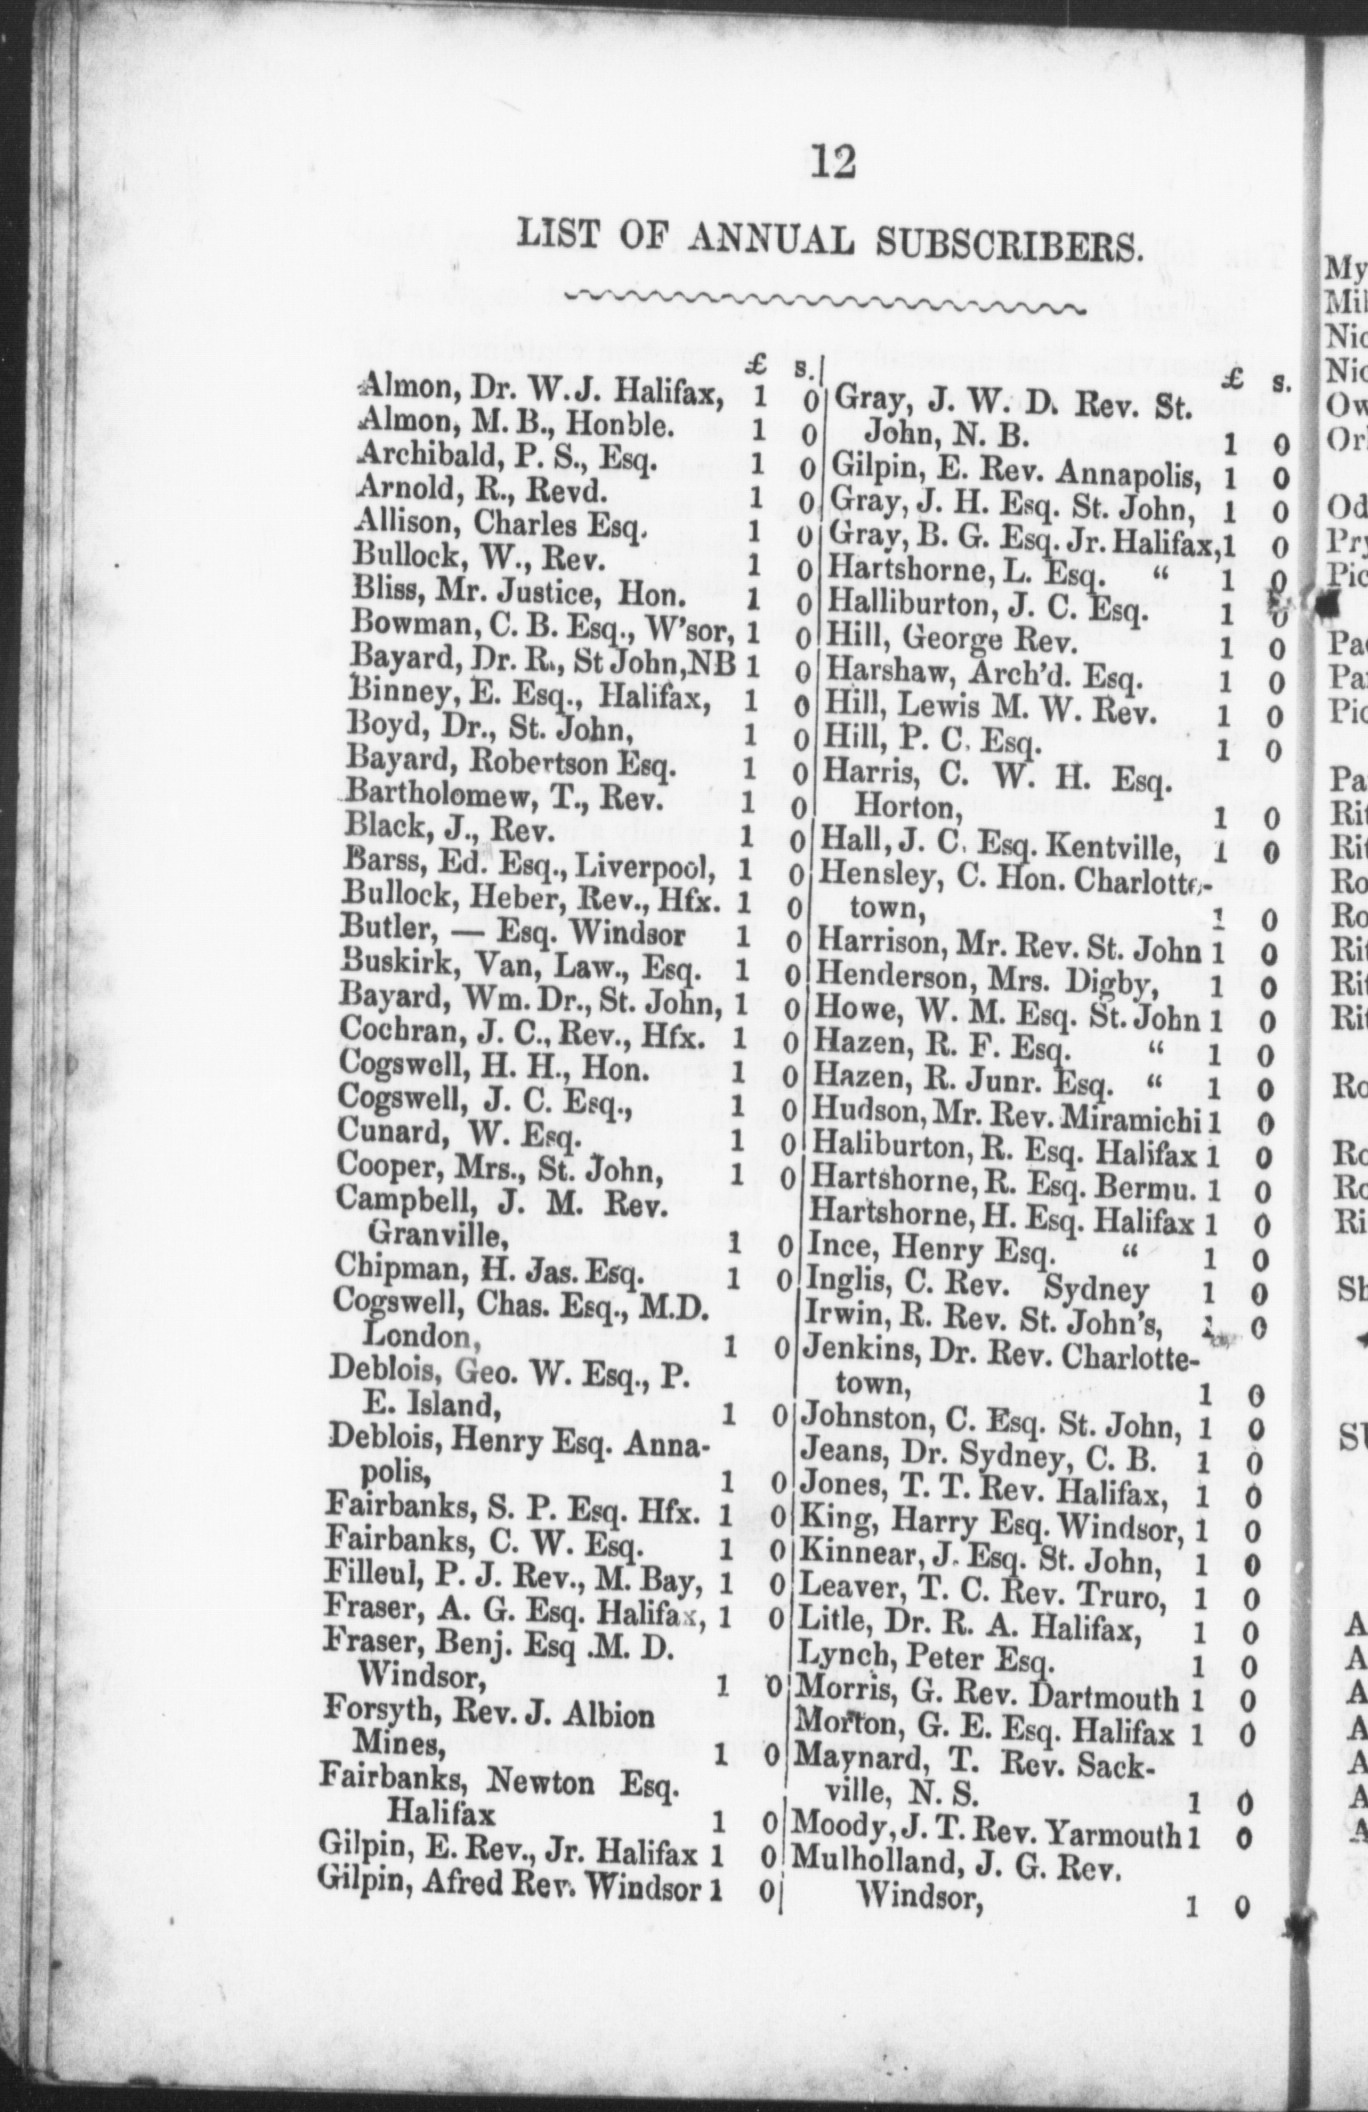 12
LIST OF ANNUAL SUBSCRIBERS.
£ s.
Almon, Dr. W. J. Halifax, 1 0
Almon, M. B., Honble. 1 0
Archibald, P. S., Esq. 1 0
Arnold, R., Revd. 1 0
Allison, Charles Esq. 1 0
Bullock, W., Rev. 1 0
Bliss, Mr. Justice, Hon. 1 0
Bowman, C. B. Esq., W'sor, 1 0
Bayard, Dr. R., St John, NB 1 0
Binney, E. Esq., Halifax, 1 0
Boyd, Dr., St. John, 1 0
Bayard, Robertson Esq. 1 0
Bartholomew, T., Rev. 1 0
Black, J., Rev. 1 0
Barss, Ed. Esq., Liverpool, 1 0
Bullock, Heber, Rev., Hfx. 1 0
Butler, — Esq. Windsor 1 0
Buskirk, Van, Law., Esq. 1 0
Bayard, Wm. Dr., St. John, 1 0
Cochran, J. C., Rev., Hfx. 1 0
Cogswell, H. H., Hon. 1 0
Cogswell, J. C. Esq., 1 0
Cunard, W. Esq. 1 0
Cooper, Mrs., St. John, 1 0
Campbell, J. M. Rev.
Granville, 1 0
Chipman, H. Jas. Esq. 1 0
Cogswell, Chas. Esq., M.D.
London, 1 0
Deblois, Geo. W. Esq., P.
E. Island, 1 0
Deblois, Henry Esq. Anna-
polis, 1 0
Fairbanks, S. P. Esq. Hfx. 1 0
Fairbanks, C. W. Esq. 1 0
Filleul, P. J. Rev., M. Bay, 1 0
Fraser, A. G. Esq. Halifax, 1 0
Fraser, Benj. Esq .M. D.
Windsor, 1 0
Forsyth, Rev. J. Albion
Mines, 1 0
Fairbanks, Newton Esq.
Halifax 1 0
Gilpin, E. Rev., Jr. Halifax 1 0
Gilpin, Afred Rev. Windsor 1 0
£ s.
Gray, J. W. D. Rev. St.
John, N. B. 1 0
Gilpin, E. Rev. Annapolis, 1 0
Gray, J. H. Esq. St. John, 1 0
Gray, B. G. Esq. Jr. Halifax, 1 0
Hartshorne, L. Esq. “ 1 0
Halliburton, J. C. Esq. 1 0
Hill, George Rev. 1 0
Harshaw, Arch'd. Esq. 1 0
Hill, Lewis M. W. Rev. 1 0
Hill, P. C. Esq. 1 0
Harris, C. W. H. Esq.
Horton, 1 0
Hall, J. C. Esq. Kentville, 1 0
Hensley, C. Hon. Charlotte-
town, 1 0
Harrison, Mr. Rev. St. John 1 0
Henderson, Mrs. Digby, 1 0
Howe, W. M. Esq. St. John 1 0
Hazen, R. F. Esq. “ 1 0
Hazen, R. Junr. Esq. “ 1 0
Hudson, Mr. Rev. Miramichi 1 0
Haliburton, R. Esq. Halifax 1 0
Hartshorne, R. Esq. Bermu. 1 0
Hartshorne, H. Esq. Halifax 1 0
Ince, Henry Esq. “ 1 0
Inglis, C. Rev. Sydney 1 0
Irwin, R. Rev. St. John's, 1 0
Jenkins, Dr. Rev. Charlotte-
town, 1 0
Johnston, C. Esq. St. John, 1 0
Jeans, Dr. Sydney, C. B. 1 0
Jones, T. T. Rev. Halifax, 1 0
King, Harry Esq. Windsor, 1 0
Kinnear, J. Esq. St. John, 1 0
Leaver, T. C. Rev. Truro, 1 0
Litle, Dr. R. A. Halifax, 1 0
Lynch, Peter Esq. 1 0
Morris, G. Rev. Dartmouth 1 0
Morton, G. E. Esq. Halifax 1 0
Maynard, T. Rev. Sack-
ville, N. S. 1 0
Moody, J. T. Rev. Yarmouth 1 0
Mulholland, J. G. Rev.
Windsor, 1 0